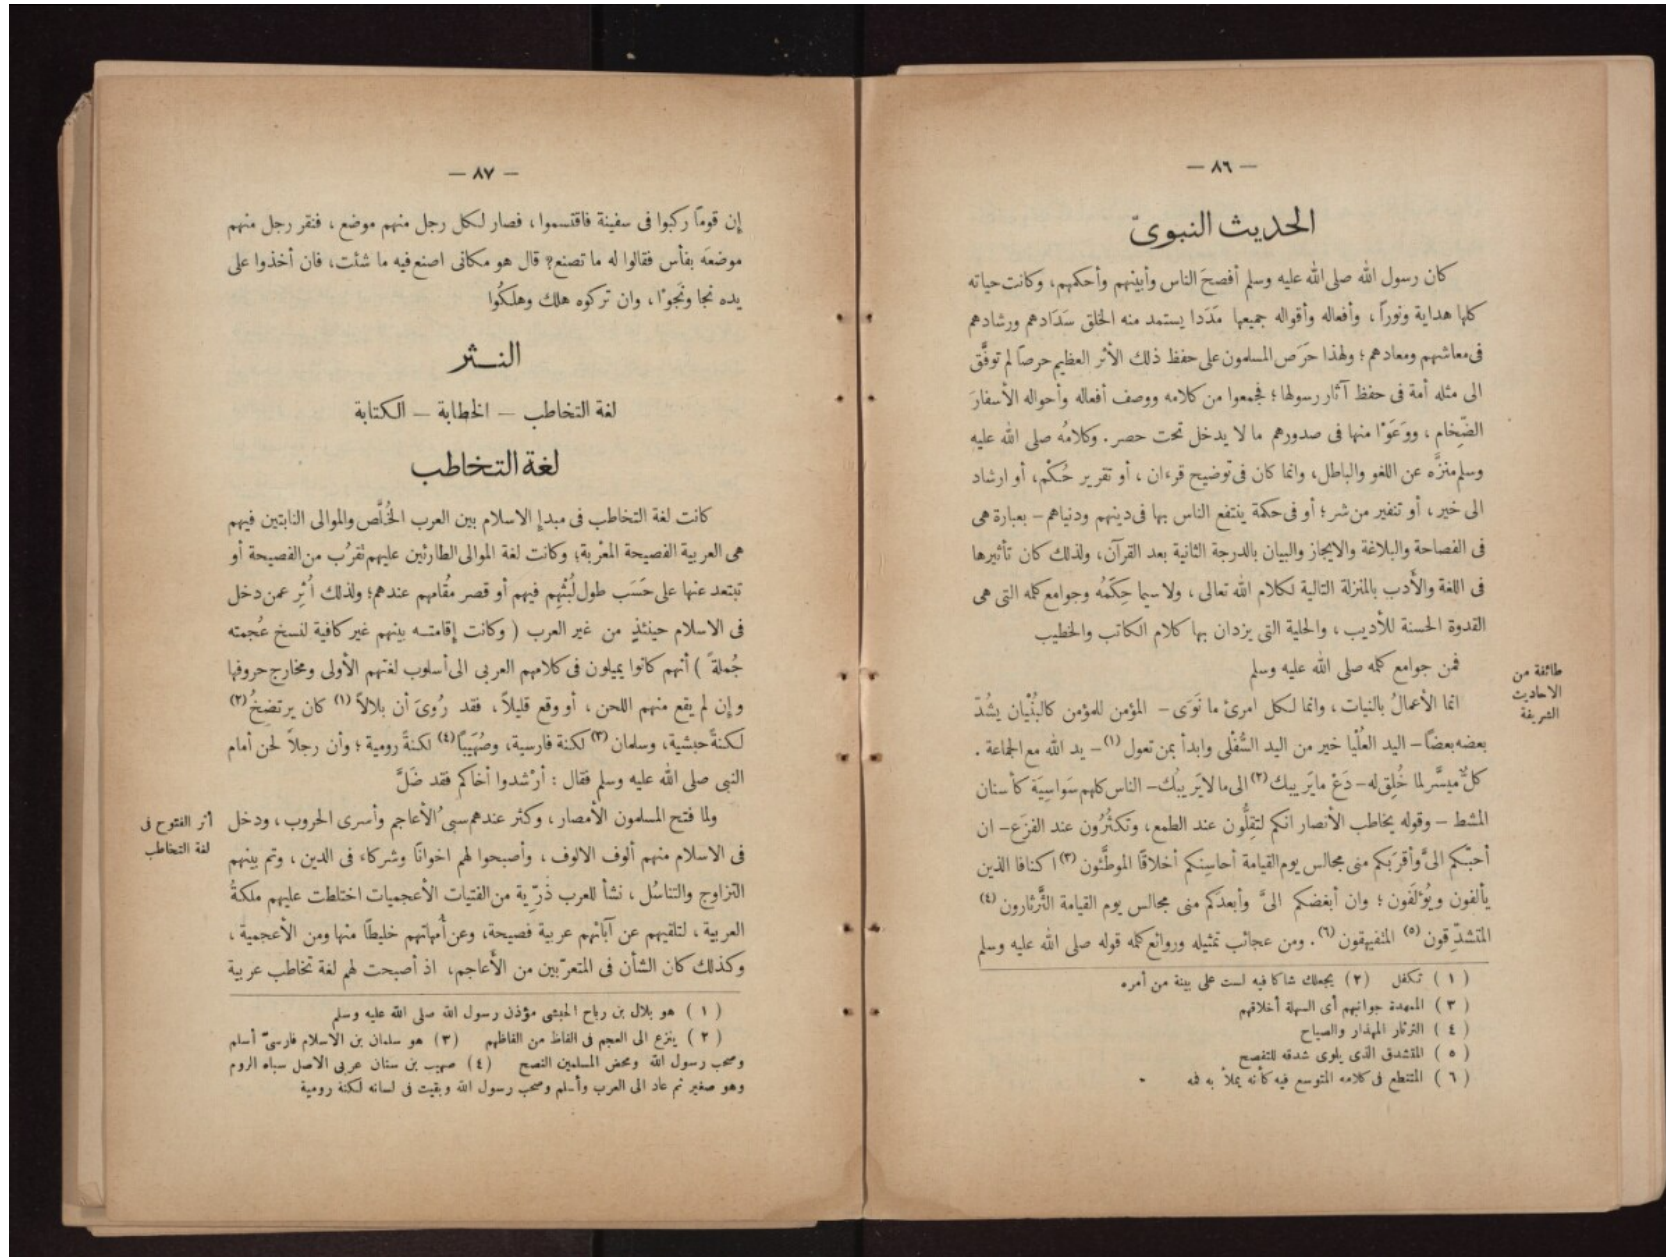 — ٨٦ —
الحديث النبوىّ
كان رسول الله صلى الله عليه وسلم أفصحَ الناس وأبينهم وأحكمهم، وكانت حياته
كلها هداية ونوراً، وأفعاله وأقواله جميعها مَدَدا يستمد منه الخلق سَدَادهم ورشادهم
فى معاشهم ومعادهم؛ ولهذا حَرَص المسلمون على حفظ ذلك الأثر العظيم حرصاً لم توفَّق
الى مثله أمة فى حفظ آثار رسولها؛ فجمعوا من كلامه ووصف أفعاله وأحواله الأسفارَ
الضِّخام، ووَعَوْا منها فى صدورهم ما لا يدخل تحت حصر. وكلامُه صلى الله عليه
وسلم منزَّه عن اللغو والباطل، وانما كان فى توضيح قرءان، أو تقرير حُكْم، أو ارشاد
الى خير، أو تنفير من شر؛ أو فى حكمة ينتفع الناس بها فى دينهم ودنياهم – بعبارة هى
فى الفصاحة والبلاغة والايجاز والبيان بالدرجة الثانية بعد القرآن، ولذلك كان تأثيرها
فى اللغة والأدب بالمنزلة التالية لكلام الله تعالى، ولا سيما حِكَمُه وجوامع كلمه التى هى
القدوة الحسنة للأديب، والحلية التى يزدان بها كلام الكاتب والخطيب
طائفة من
الاحاديث
الشريفة
فمن جوامع كلمه صلى الله عليه وسلم
انما الأعمالُ بالنيات، وانما لكل امرئ ما نَوَى – المؤمن للمؤمن كالبُنْيان يشُدّ
بعضه بعضاً – اليد العُلْيا خير من اليد السُّفْلى وابدأ بمن تعول (١) – يد الله مع الجماعة.
كلٌّ ميسَّر لما خُلِق له – دَعْ ما يَريبك (٢) الى ما لا يَريبُك – الناس كلهم سَواسِيَة كأسنان
المشط – وقوله يخاطب الأنصار انكم لتقِلُّون عند الطمع، وتَكثُرُون عند الفزَع – ان
أحبّكم الىَّ وأقرَبكم منى مجالس يوم القيامة أحاسِنكم أخلاقًا الموطَّئون (٣) اكنافا الذين
يألفون ويُؤْلفَون؛ وان أبغضكم الىَّ وأبعدَكم منى مجالس يوم القيامة الثَّرثارون (٤)
المتشدِّقون (٥) المتفيهقون (٦). ومن عجائب تمثيله وروائع كلمه قوله صلى الله عليه وسلم
(١) تكفل (٢) يجعلك شاكا فيه لست على بينة من أمره
(٣) الممهدة جوانبهم أى السهلة أخلاقهم
(٤) الثرثار المهذار والصياح
(٥) المتشدق الذى يلوى شدقه للتفصح
(٦) المتنطع فى كلامه المتوسع فيه كأنه يملأ به فمه
— ٨٧ —
إن قوماً ركبوا فى سفينة فاقتسموا، فصار لكل رجل منهم موضع، فنقر رجل منهم
موضعَه بفأس فقالوا له ما تصنع؟ قال هو مكانى اصنع فيه ما شئت، فان أخذوا على
يده نجا ونَجَوْا، وان تركوه هلك وهلكُوا
النثر
لغة التخاطب – الخطابة – الكتابة
لغة التخاطب
كانت لغة التخاطب فى مبدإ الاسلام بين العرب الخُلَّص والموالى النابتين فيهم
هى العربية الفصيحة المعْربة؛ وكانت لغة الموالى الطارئين عليهم تقرُب من الفصيحة أو
تبتعد عنها على حَسَب طول لُبْثهِم فيهم أو قصر مقُامهم عندهم؛ ولذلك أُثِر عمن دخل
فى الاسلام حينئذٍ من غير العرب (وكانت إقامتـه بينهم غير كافية لنسخ عُجمته
جُملةً) أنهم كانوا يميلون فى كلامهم العربى الى أسلوب لغتهم الأولى ومخارج حروفها
وإن لم يقع منهم اللحن، أو وقع قليلاً، فقد رُوىَ أن بلالاً (١) كان يرتضخُ (٢)
لَكنةً حبشية، وسلمان (٣) لكنة فارسية، وصُهَيبًا (٤) لكنةً رومية؛ وأن رجلاً لحن أمام
النبى صلى الله عليه وسلم فقال: أرْشدوا أخاكم فقد ضَلَّ
أثر الفتوح فى
لغة التخاطب
ولما فتح المسلمون الأمصار، وكثر عندهم سبىُ الأعاجم وأسرى الحروب، ودخل
فى الاسلام منهم ألوف الالوف، وأصبحوا لهم اخوانًا وشركاءَ فى الدين، وتم بينهم
التزاوج والتناسُل، نشأ للعرب ذُرّية من الفتيات الأعجميات اختلطت عليهم ملكةُ
العربية، لتلقيهم عن آبائهم عربية فصيحة، وعن أُمهاتهم خليطًا منها ومن الأعجمية،
وكذلك كان الشأن فى المتعرّبين من الأعاجم، اذ أصبحت لهم لغة تخاطب عربية
(١) هو بلال بن رباح الحبشى مؤذن رسول الله صلى الله عليه وسلم
(٢) ينزع الى العجم فى الفاظ من الفاظهم (٣) هو سلمان بن الاسلام فارسىّ أسلم
وصحب رسول الله ومحض المسلمين النصح (٤) صهيب بن سنان عربى الاصل سباه الروم
وهو صغير ثم عاد الى العرب وأسلم وصحب رسول الله وبقيت فى لسانه لكنة رومية